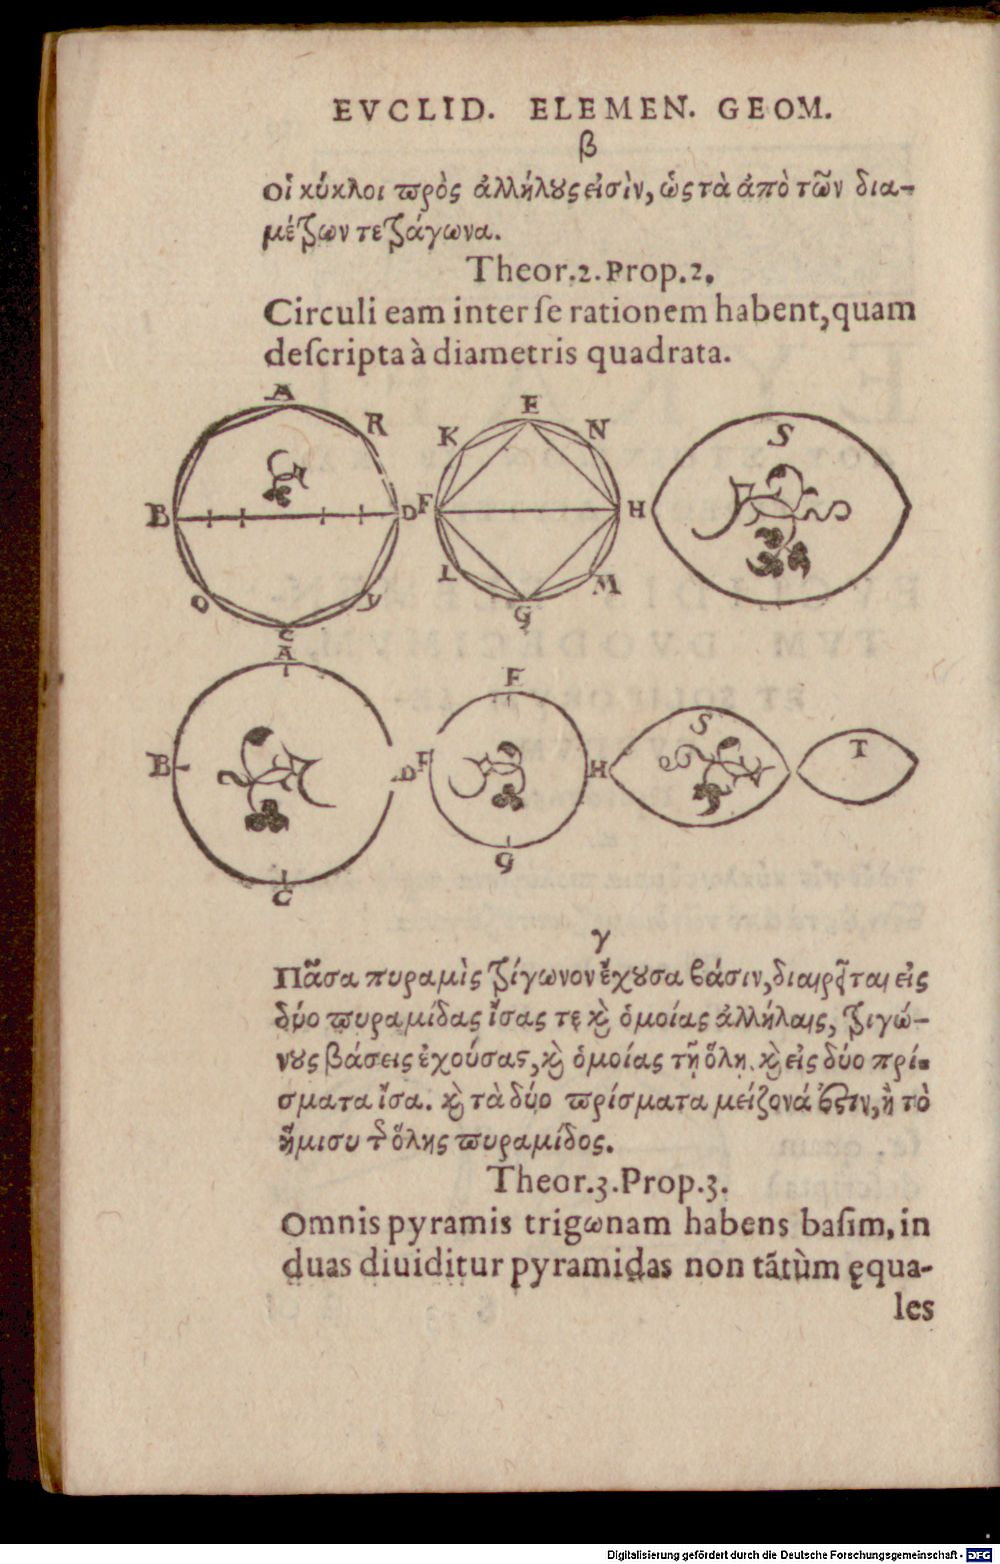 EVCLID. ELEMEN. GEOM.
β
οἱ κύκλοι πρὸς ἀλλήλους εἰσὶν, ὡς τὰ ἀπὸ τῶν δια-
μέτρων τετράγωνα.
Theor.2. Prop.2.
Circuli eam inter ſe rationem habent, quam
deſcripta à diametris quadrata.
A R B D O C Y
E K N F H L M G
S
A B D C
E F H G
S
T
γ
Πᾶσα πυραμὶς τρίγωνον ἔχουσα βάσιν, διαιρεῖται εἰς
δύο πυραμίδας ἴσας τε καὶ ὁμοίας ἀλλήλαις, τριγώ-
νους βάσεις ἐχούσας, καὶ ὁμοίας τῇ ὅλῃ. καὶ εἰς δύο πρί-
σματα ἴσα. καὶ τὰ δύο πρίσματα μείζονά ἐστιν, ἢ τὸ
ἥμισυ τῆς ὅλης πυραμίδος.
Theor.3. Prop.3.
Omnis pyramis trigωnam habens baſim, in
duas diuiditur pyramidas non tãtùm ęqua-
les
Digitalisierung gefördert durch die Deutsche Forschungsgemeinschaft - DFG